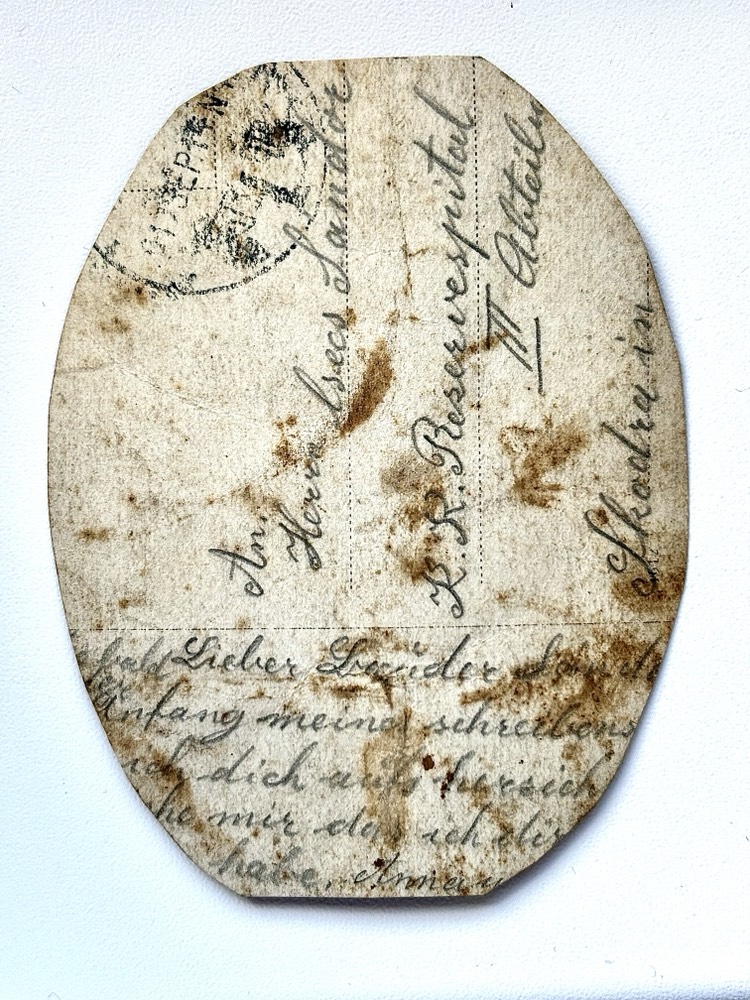 An
Herrn Isecs Sandor
K. K. Reservespital
II Abteilu
Skodra in
bald Lieber Bruder San
Anfang meines schreibens
ich dich aufs hersich
he mir das ich dir
habe, Anna